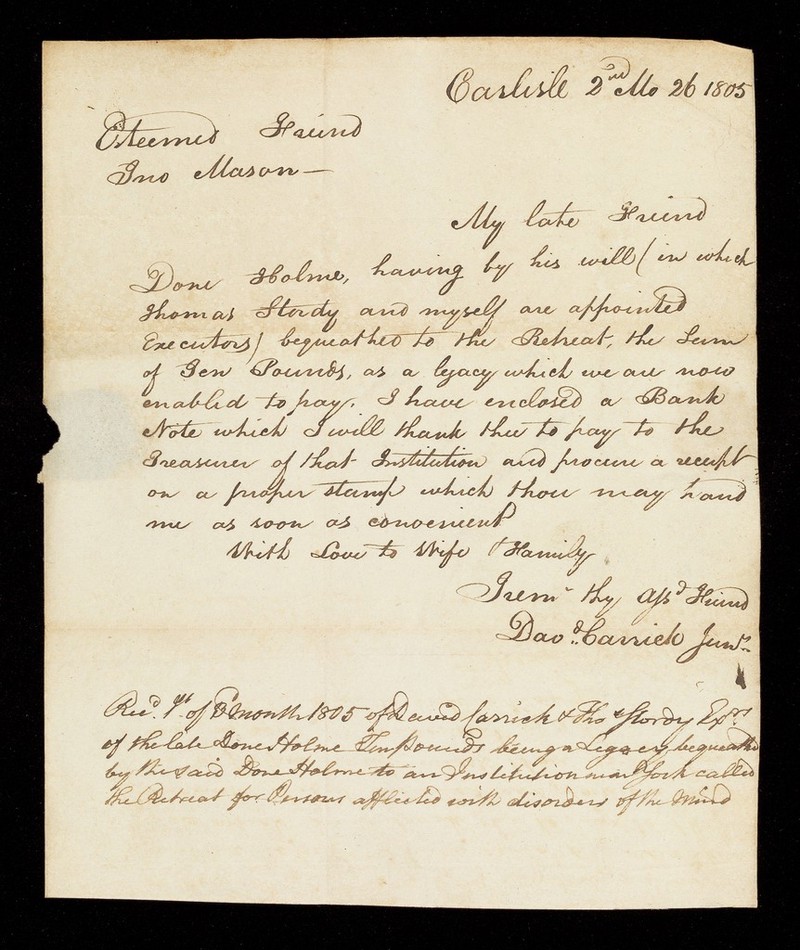 Carlisle 2nd Mo 26 1805
Esteemed Friend
Jno Mason —
My late Friend
Done Holme, having by his will (in which
Thomas Stordy and myself are appointed
Executors) bequeathed to the Retreat, the Sum
of Ten Pounds, as a legacy which we are now
enabled to pay. I have enclosed a Bank
Note which I will thank thee to pay to the
Treasurer of that Institution and procure a receipt
on a proper stamp which thou may hand
me as soon as convenient
With Love to Wife & Family
I rem thy affd Friend
Davd. Carrick Junr.
Recd. 1st of month 1805 of David Carrick & Thos Stordy Exrs
of the late Done Holme Ten Pounds being a Legacy bequeathd
by the said Done Holme to an Institution near York called
the Retreat for Persons afflicted with disorders of the Mind